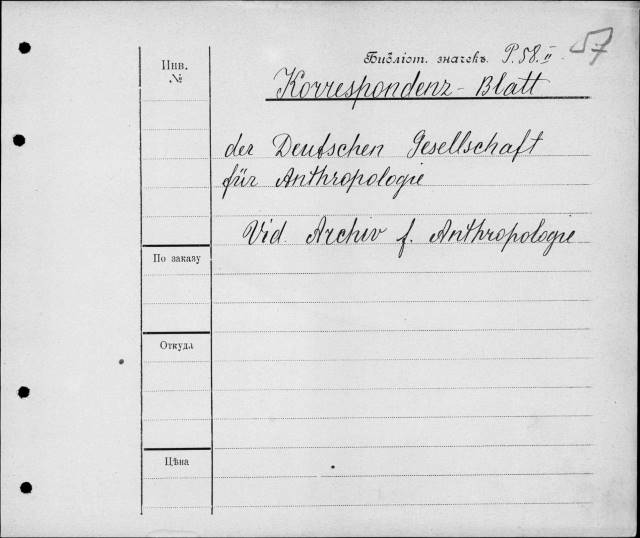 57
Библіот. значекъ. P. 58. II
Инв.
№
Korrespondenz-Blatt
der Deutschen Gesellschaft
für Anthropologie
Vid. Archiv f. Anthropologie
По заказу
Откуда
Цѣна